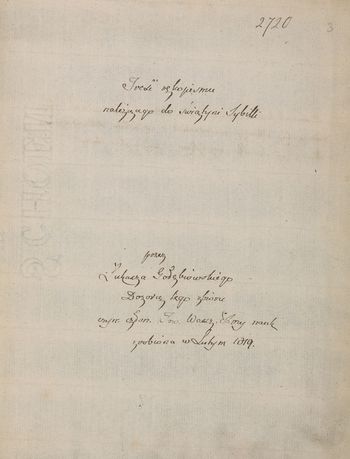 2720
3
Treść rękopismu
należącego do świątyni Sybilli
przez
Łukasza Gołębiowskiego
Dozorcę tego zbioru
czyn. Człon. Tow. Warsz. Przy. nauk
zrobiona w Lutym 1819.